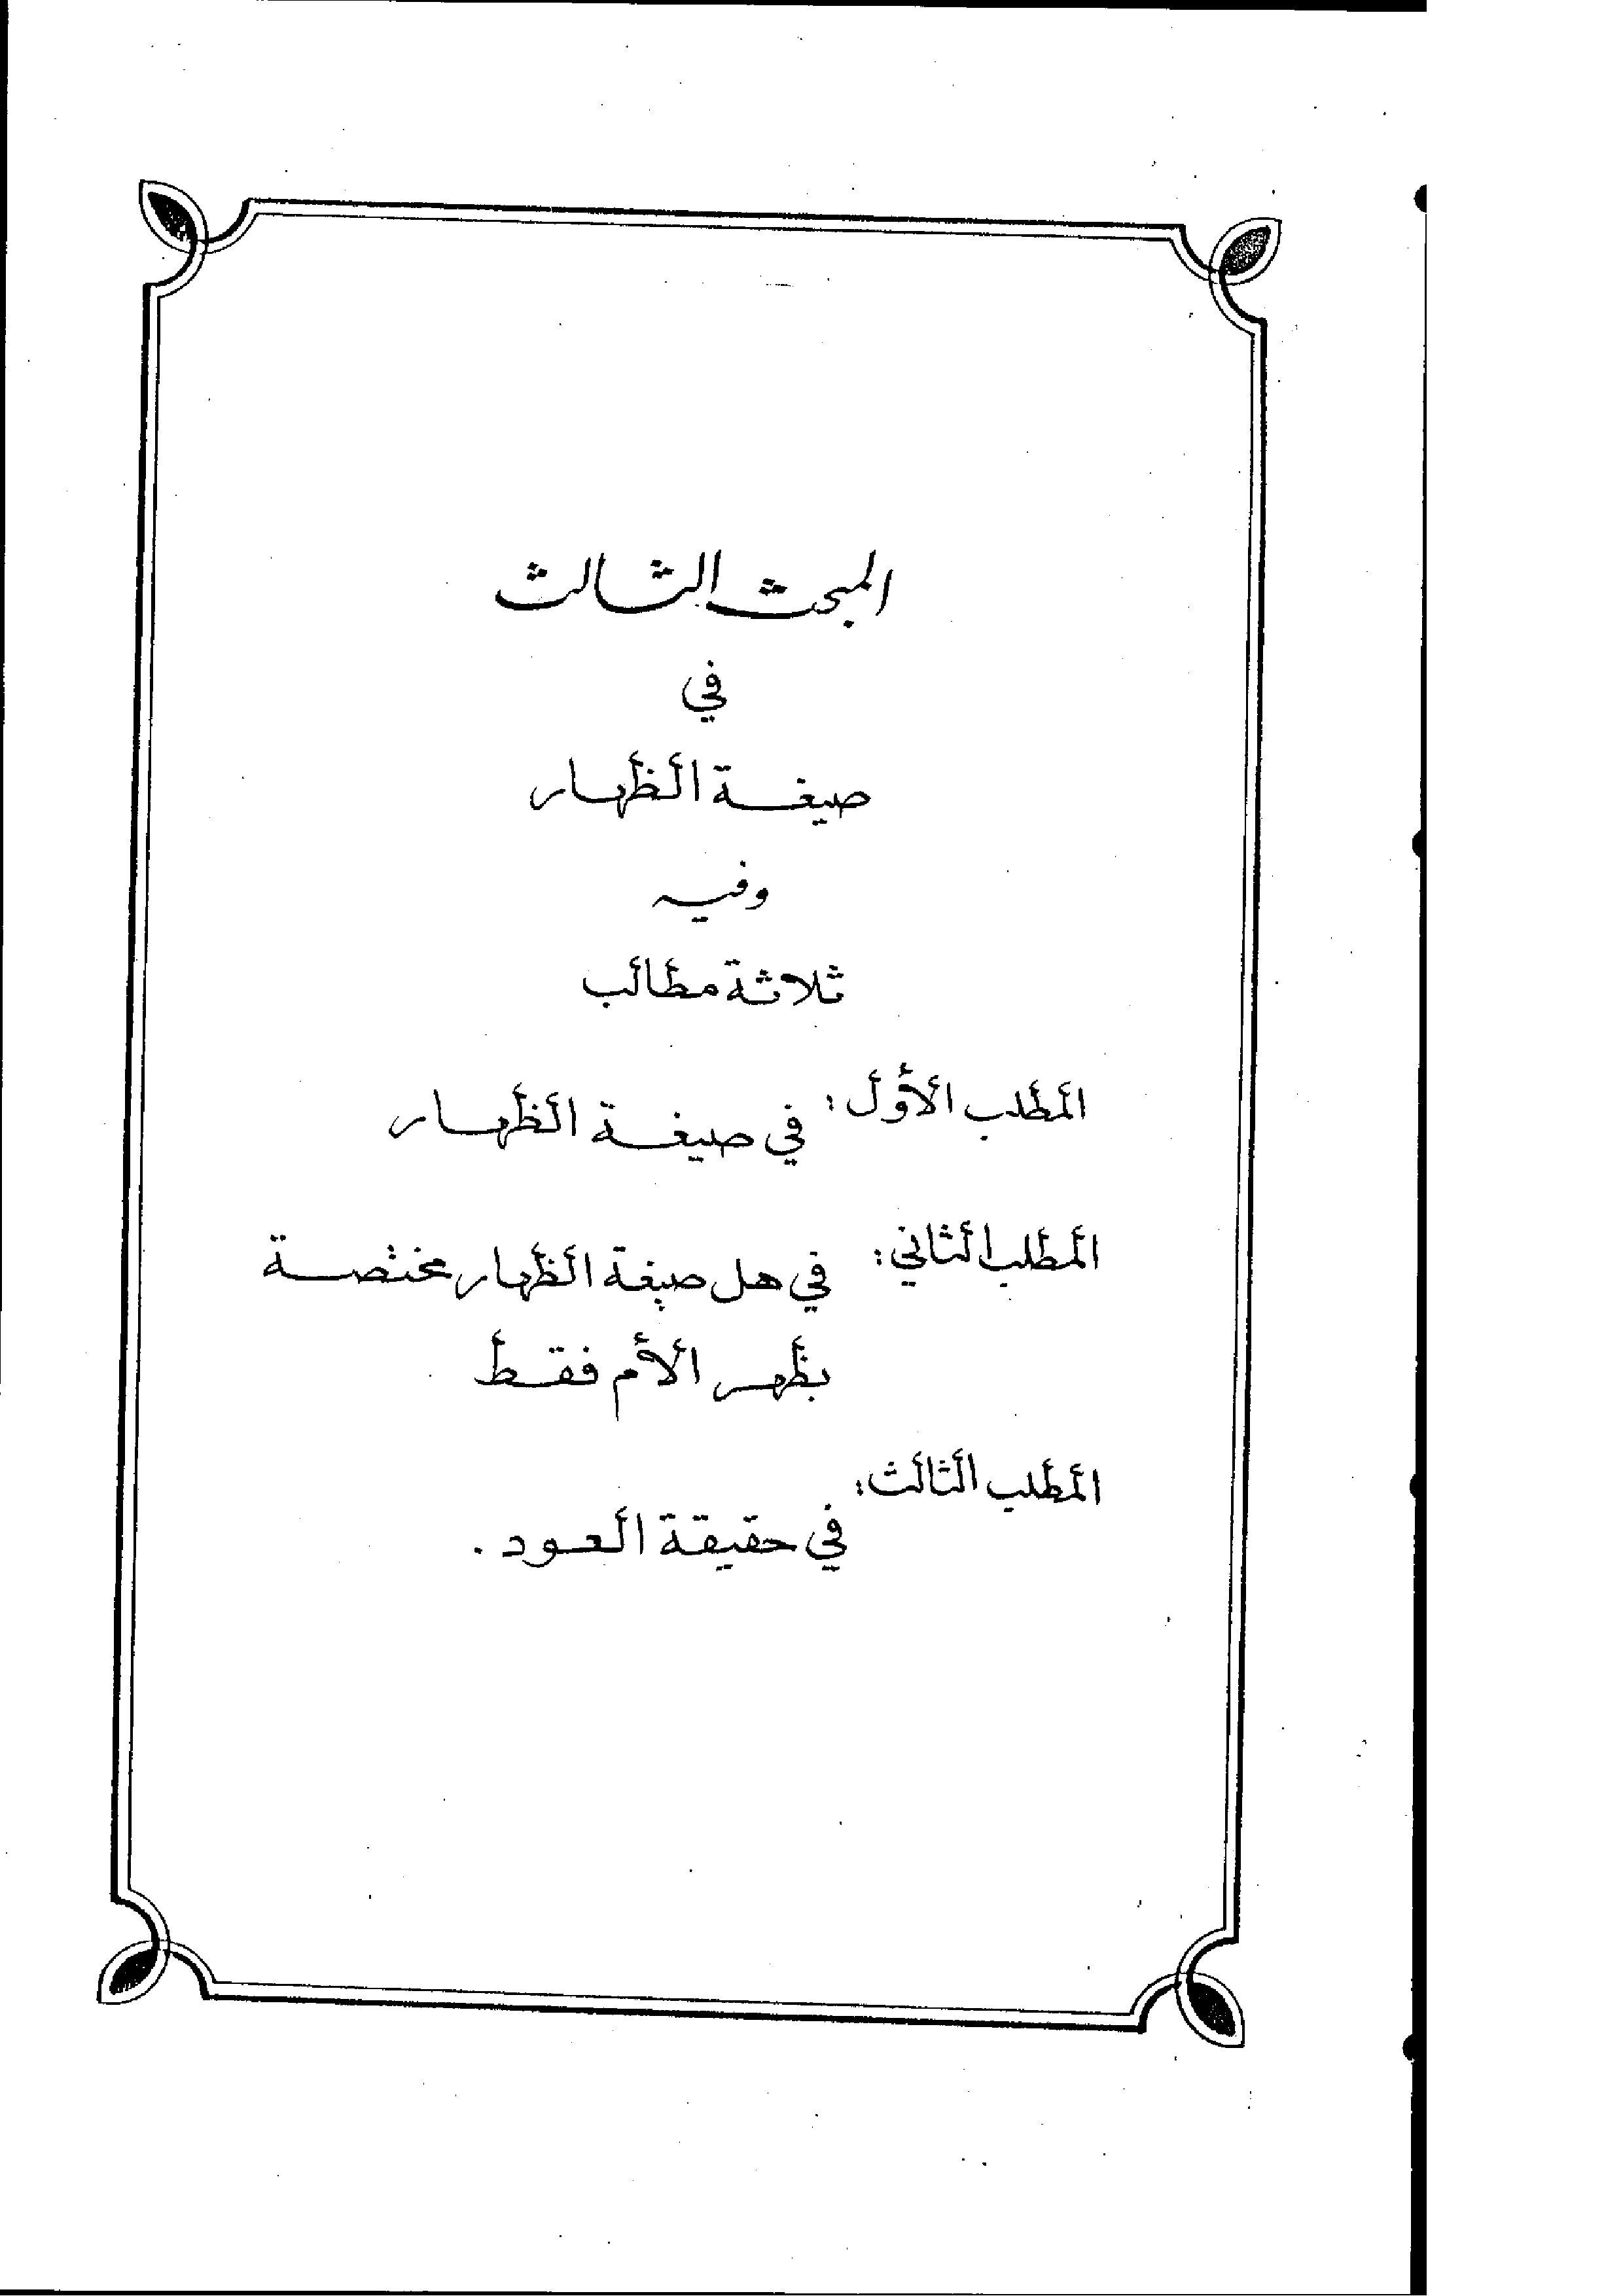 المبحث الثالث
في
صيغة الظهار
وفيه
ثلاثة مطالب
المطلب الأول: في صيغة الظهار
المطلب الثاني: في هل صيغة الظهار مختصة
بظهر الأم فقط
المطلب الثالث: في حقيقة العود.